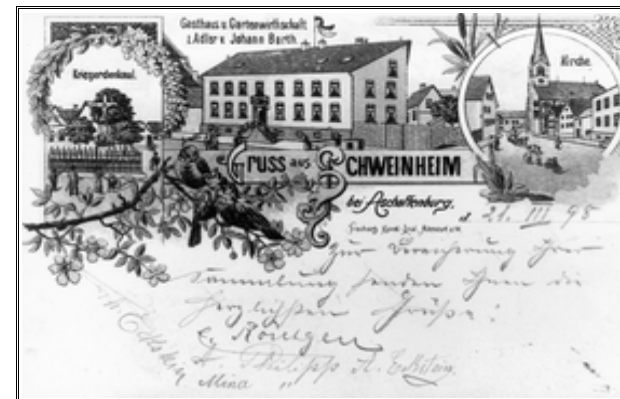 Gasthaus u. Gartenwirthschaft
z. Adler v. Johann Barth.
Kriegerdenkmal.
Kirche.
GRUSS aus SCHWEINHEIM
bei Aschaffenburg,
d. 21. III 98
Zur Vermehrung Ihrer
Sammlung senden Ihnen die
herzlichsten Grüße:
Röntgen
Philipp A. Eckstein
Mina "